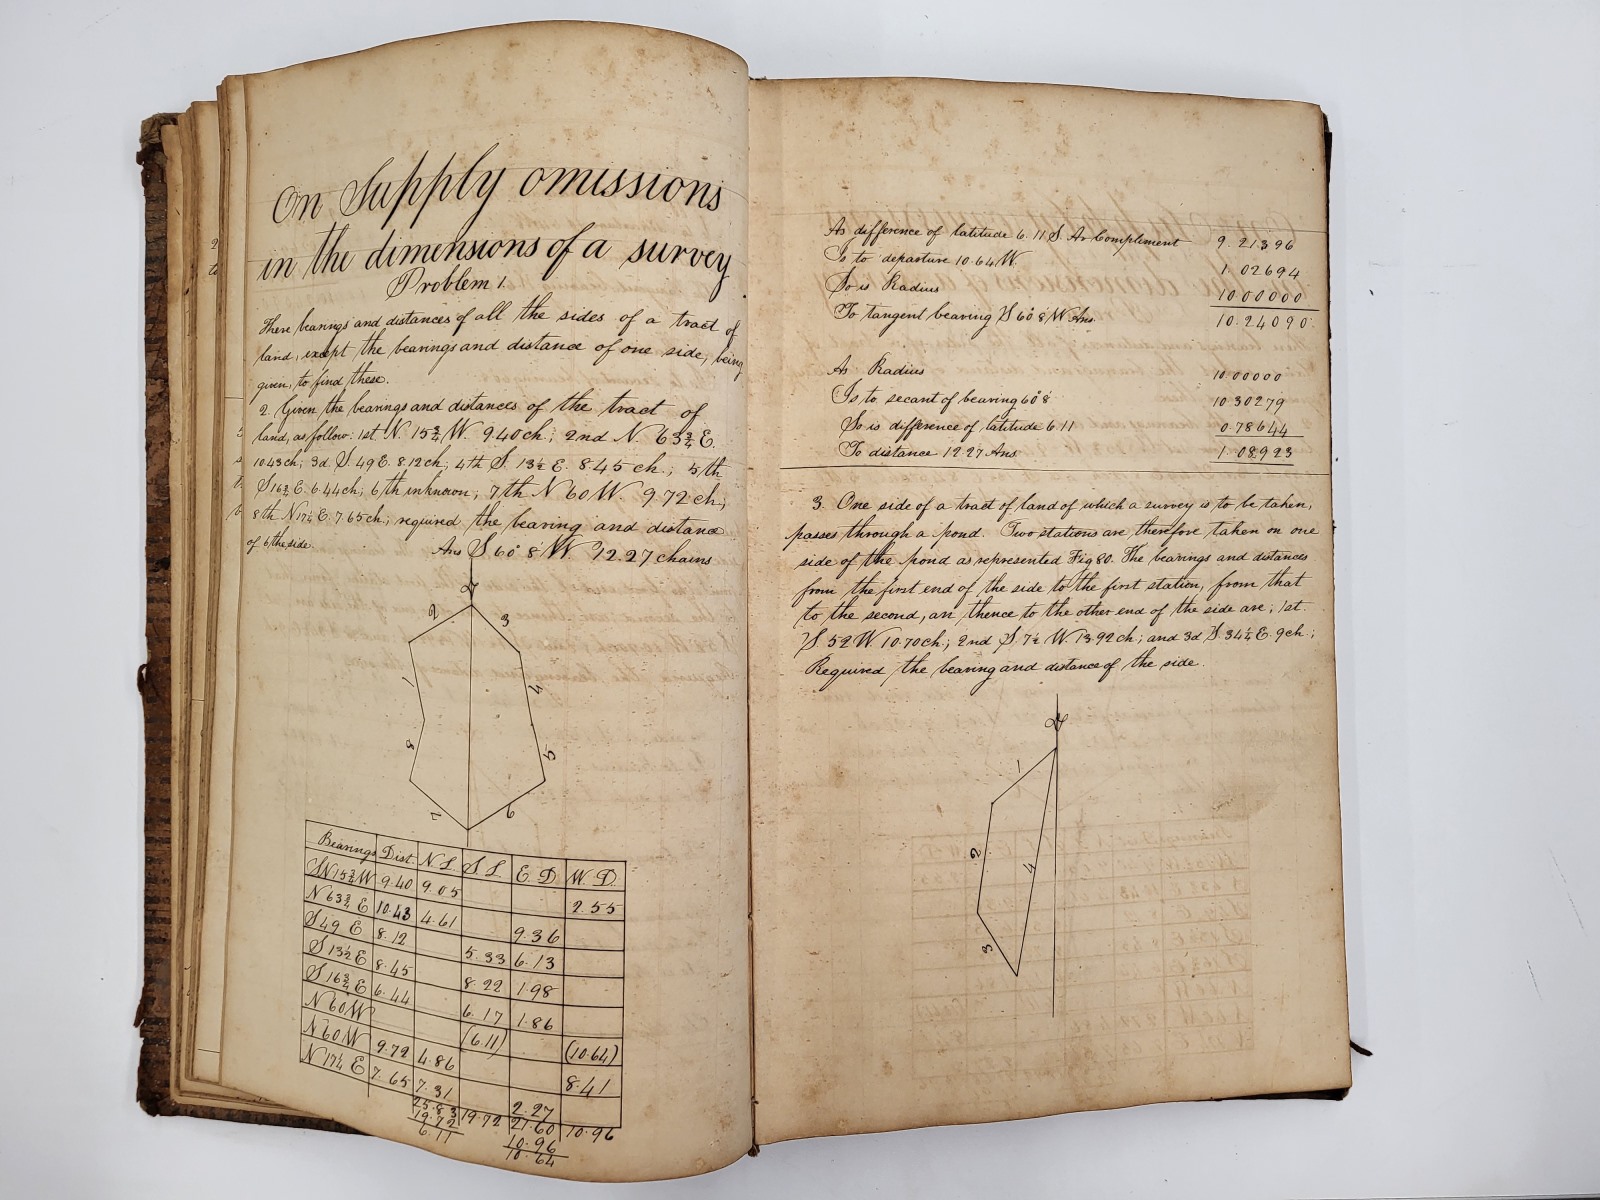 On Supply omissions
in the dimensions of a survey
Problem 1.
There bearings and distances of all the sides of a tract of
land, except the bearings and distance of one side, being
given, to find these.
2. Given the bearings and distances of the tract of
land, as follow: 1st. N. 15¾ W. 9.40 ch.; 2nd N. 63¾ E.
10.43 ch; 3d. S. 49 E. 8.12 ch; 4th S. 13½ E. 8.45 ch.; 5th
S 16¾ E. 6.44 ch; 6th inknown; 7th N 60 W. 9.72 ch;
8th N 17¼ E. 7.65 ch; required the bearing and distance
of 6th side.
Ans S 60° 8' W 12.27 chains
2 3
1 4
8 5
7 6
Bearings Dist. N L. S L E. D W. D.
N 15¾ W 9.40 9.05 2.55
N 63¾ E 10.43 4.61 9.36
S 49 E 8.12 5.33 6.13
S 13½ E 8.45 8.22 1.98
S 16¾ E 6.44 6.17 1.86
N 60 W (6.11) (10.64)
N 60 W 9.72 4.86 8.41
N 17¼ E 7.65 7.31 2.27
25.83 19.72 21.60 10.96
19.72 10.96
6.11 10.64
As difference of latitude 6.11 S. Ar Compliment 9.21396
Is to departure 10.64 W. 1.02694
So is Radius 10.00000
To tangent bearing S 60° 8' W Ans. 10.24090
As Radius 10.00000
Is to secant of bearing 60° 8' 10.30279
So is difference of latitude 6.11 0.78644
To distance 12.27 Ans 1.08923
3. One side of a tract of land of which a survey is to be taken,
passes through a pond. Two stations are therefore taken on one
side of the pond as represented Fig 80. The bearings and distances
from the first end of the side to the first station, from that
to the second, an thence to the other end of the side are; 1st.
S. 52 W. 10.70 ch.; 2nd S. 7½ W. 13.92 ch; and 3d S. 34¼ E. 9 ch.;
Required the bearing and distance of the side.
1
2 4
3